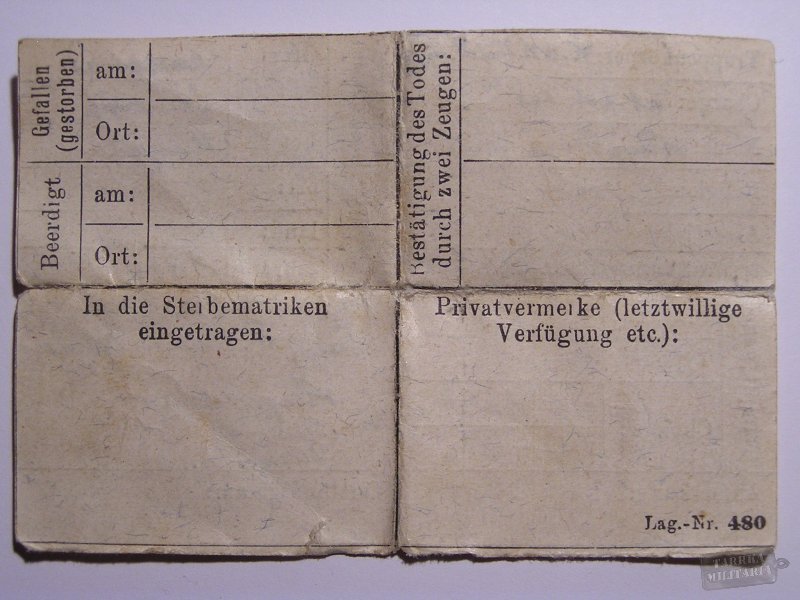 Gefallen
(gestorben)
am:
Ort:
Beerdigt
am:
Ort:
Bestätigung des Todes
durch zwei Zeugen:
In die Sterbematriken
eingetragen:
Privatvermerke (letztwillige
Verfügung etc.):
Lag.-Nr. 480
TARRKA
MILITARIA